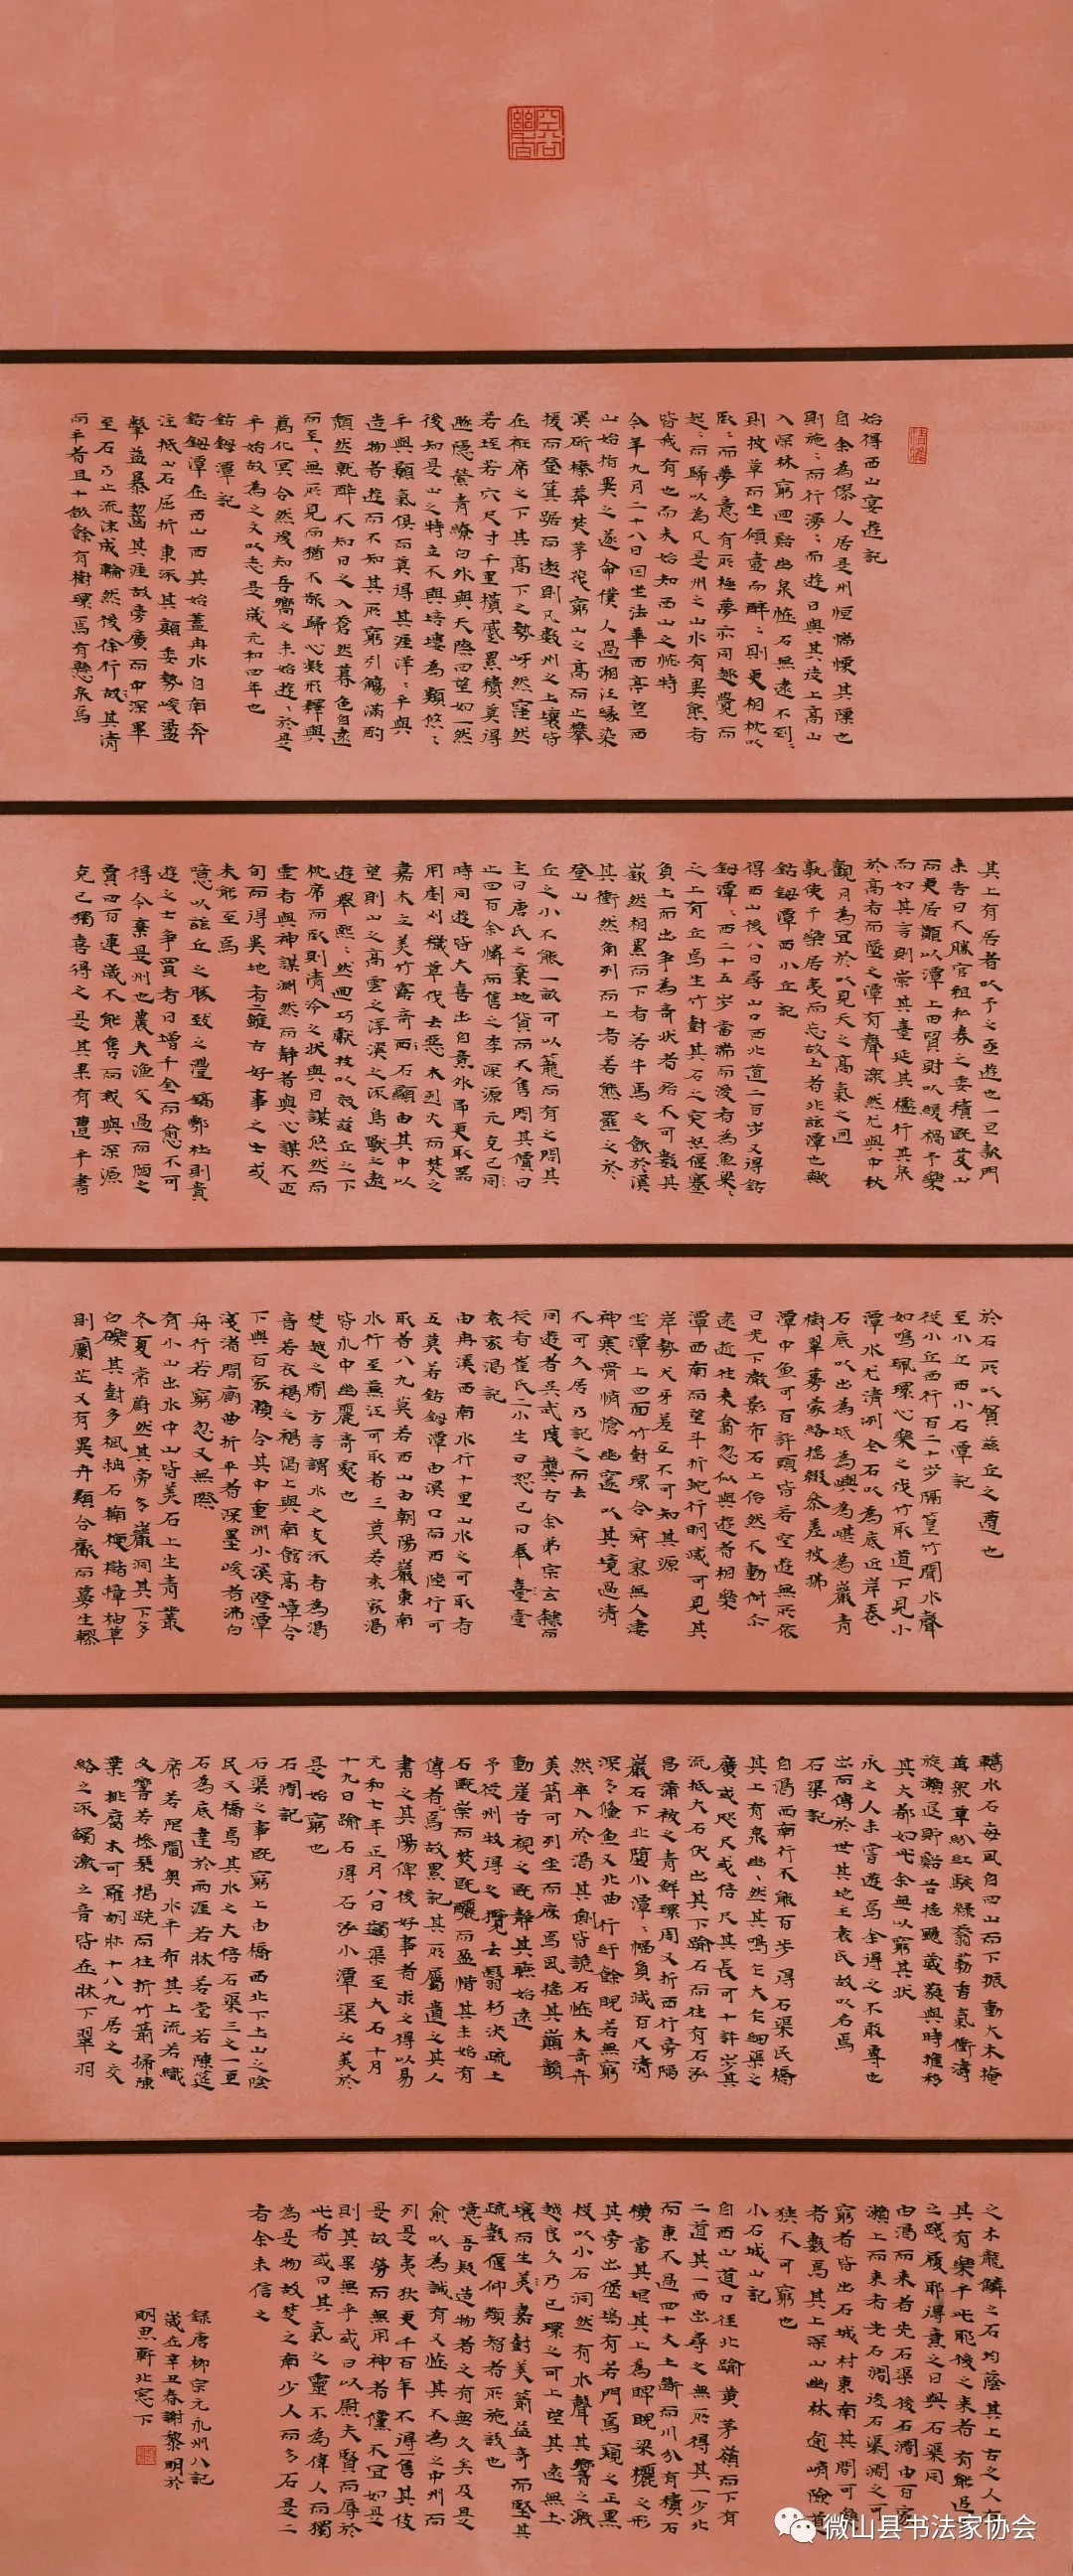 始得西山宴遊記
自余為僇人居是州恒惴慄其隟也
則施：而行湧：而遊日與其徒上高山
入深林窮迴谿幽泉恠石無遠不到：
則披草而坐傾壺而醉：則更相枕以
臥：而夢意有所極夢亦同趣覺而
起：而歸以為凡是州之山水有異態者
皆我有也而未始知西山之恠特
今年九月二十八日因坐法華西亭望西
山始指異之遂命僕人過湘江緣染
溪斫榛莽焚茅茷窮山之高而止攀
援而登箕踞而遨則凡數州之土壤皆
在衽席之下其高下之勢岈然窪然
若垤若穴尺寸千里攢蹙累積莫得
遯隱縈青繚白外與天際四望如一然
後知是山之特立不與培塿為類悠：
乎與顥氣俱而莫得其涯洋：乎與
造物者遊而不知其所窮引觴滿酌
頹然就醉不知日之入蒼然暮色自遠
而至：無所見而猶不欲歸心凝形釋與
萬化冥合然後知吾嚮之未始遊：於是
乎始故為之文以志是歲元和四年也
鈷鉧潭記
鈷鉧潭在西山西其始蓋冉水自南奔
注抵山石屈折東流其顛委勢峻盪
擊益暴齧其涯故旁廣而中深畢
至石乃止流沫成輪然後徐行故其清
而平者且十畝餘有樹環焉有懸泉焉
其上有居者以予之亟遊也一旦款門
來告曰不勝官租私券之委積既芟山
而更居願以潭上田貿財以緩禍予樂
而如其言則崇其臺延其檻行其泉
於高者而墜之潭有聲潀然尤與中秋
觀月為宜於以見天之高氣之迥
孰使予樂居夷而忘故土者非茲潭也歟
鈷鉧潭西小丘記
得西山後八日尋山口西北道二百步又得鈷
鉧潭：西二十五步當湍而浚者為魚梁：
之上有丘焉生竹樹其石之突怒偃蹇
負土而出爭為奇狀者殆不可數其
嶔然相累而下者若牛馬之飲於溪
其衝然角列而上者若熊羆之於
登山
丘之小不能一畝可以籠而有之問其
主曰唐氏之棄地貨而不售問其價曰
止四百余憐而售之李深源元克己同
時同遊皆大喜出自意外即更取器
用剷刈穢草伐去惡木烈火而焚之
嘉木立美竹露奇石顯由其中以
望則山之高雲之浮溪之流鳥獸之遨
遊舉熙：然迴巧獻技以效茲丘之下
枕席而臥則清泠之狀與目謀悠然而
虛者與神謀淵然而靜者與心謀不匝
旬而得異地者二雖古好事之士或
未能至焉
噫以茲丘之勝致之灃鎬鄠杜則貴
遊之士爭買者日增千金而愈不可
得今棄是州也農夫漁父過而陋之
賈四百連歲不能售而我與深源
克己獨喜得之是其果有遭乎書
於石所以賀茲丘之遭也
至小丘西小石潭記
從小丘西行百二十步隔篁竹聞水聲
如鳴珮環心樂之伐竹取道下見小
潭水尤清洌全石以為底近岸卷
石底以出為坻為嶼為嵁為巖青
樹翠蔓蒙絡搖綴參差披拂
潭中魚可百許頭皆若空遊無所依
日光下澈影布石上佁然不動俶尓
遠逝往來翕忽似與遊者相樂
潭西南而望斗折蛇行明滅可見其
岸勢犬牙差互不可知其源
坐潭上四面竹樹環合寂寥無人淒
神寒骨悄愴幽邃以其境過清
不可久居乃記之而去
同遊者吳武陵龔古余弟宗玄隸而
從者崔氏二小生曰恕己曰奉壹
袁家渴記
由冉溪西南水行十里山水之可取者
五莫若鈷鉧潭由溪口而西陸行可
取者八九莫若西山由朝陽巖東南
水行至蕪江可取者三莫若袁家渴
皆永中幽麗奇處也
楚越之間方言謂水之支流者為渴
音若衣褐之褐渴上與南館高嶂合
下與百家瀨合其中重洲小溪澄潭
淺渚間廁曲折平者深墨峻者沸白
舟行若窮忽又無際
有小山出水中山皆美石上生青叢
冬夏常蔚然其旁多巖洞其下多
白礫其樹多楓柟石楠楩櫧樟柚草
則蘭芷又有異卉類合歡而蔓生轇
轕水石每風自四山而下振動大木掩
苒眾草紛紅駭綠蓊勃香氣衝濤
旋瀨退貯谿谷搖颺葳蕤與時推移
其大都如此余無以窮其狀
永之人未嘗遊焉余得之不敢專也
出而傳於世其地主袁氏故以名焉
石渠記
自渴西南行不能百步得石渠民橋
其上有泉幽：然其鳴乍大乍細渠之
廣或咫尺或倍尺其長可十許步其
流抵大石伏出其下踰石而往有石泓
昌蒲被之青鮮環周又折西行旁陷
巖石下北墮小潭：幅員減百尺清
深多儵魚又北曲行紆餘睨若無窮
然卒入於渴其側皆詭石恠木奇卉
美箭可列坐而庥焉風搖其巔韻
動崖谷視之既靜其聽始遠
予從州牧得之攬去翳朽決疏土
石既崇而焚既釃而盈惜其未始有
傳者焉故累記其所屬遺之其人
書之其陽俾後好事者求之得以易
元和七年正月八日蠲渠至大石十月
十九日踰石得石泓小潭渠之美於
是始窮也
石澗記
石渠之事既窮上由橋西北下土山之陰
民又橋焉其水之大倍石渠三之一亘
石為底達於兩涯若牀若堂若陳筵
席若限閫奧水平布其上流若織
文響若操琴揭跣而往折竹箭掃陳
葉排腐木可羅胡牀十八九居之交
絡之流觸激之音皆在牀下翠羽
之木龍鱗之石均蔭其上古之人其
其有樂乎此耶後之來者有能追
之踐履耶得意之日與石渠同
由渴而來者先石渠後石澗由百家
瀨上而來者先石澗後石渠澗之可
窮者皆出石城村東南其間可樂
者數焉其上深山幽林逾峭險道
狹不可窮也
小石城山記
自西山道口徑北踰黃茅嶺而下有
二道其一西出尋之無所得其一少北
而東不過四十丈土斷而川分有積石
橫當其垠其上為睥睨梁欐之形
其旁出堡塢有若門焉窺之正黑
投以小石洞然有水聲其響之激
越良久乃已環之可上望甚遠無土
壤而生美嘉樹美箭益奇而堅其
疏數偃仰類智者所施設也
噫吾疑造物者之有無久矣及是
愈以為誠有又恠其不為之中州而
列是夷狄更千百年不得一售其伎
是故勞而無用神者儻不宜如是
則其果無乎或曰以慰夫賢而辱於
此者或曰其氣之靈不為偉人而獨
為是物故楚之南少人而多石是二
者余未信之
錄唐柳宗元永州八記
歲在辛丑春謝黎明於
明思軒北窓下
微山县书法家协会